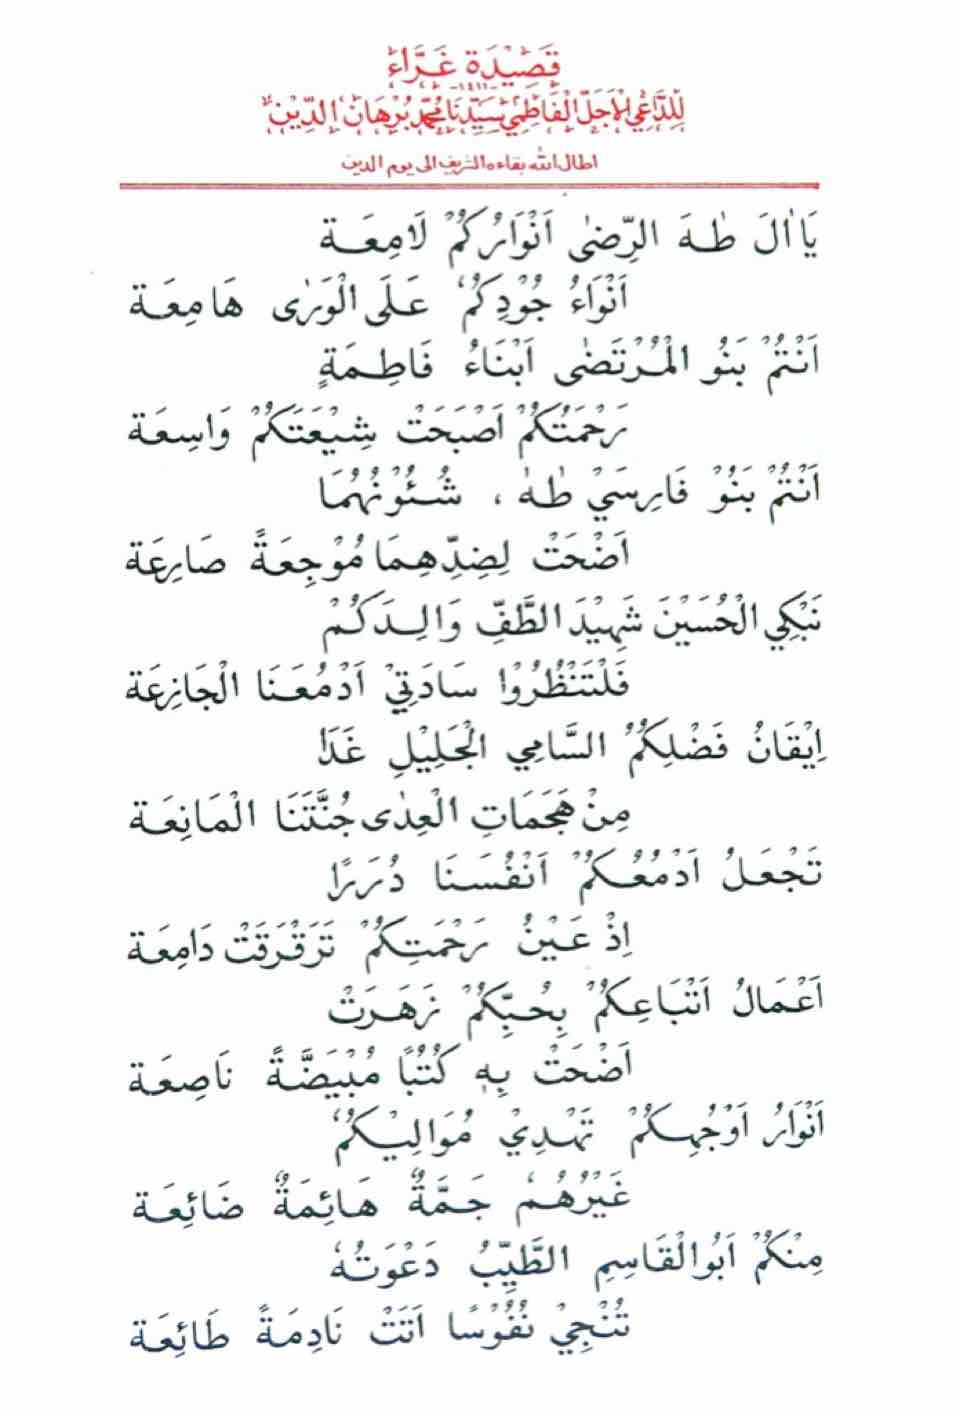 قَصِيْدَة غَرَّاء
-١٤١١-
لِلدَّاعِي الْاَجَلّ الْفَاطِمِي سَيِّدنَا مُحَمَّد بُرْهَان الدِّيْن
اطال الله بقاءه الشريف الى يوم الدين
يَا اٰلَ طٰهَ الرِّضٰى اَنْوَارُكُمْ لَامِعَة
اَنْوَاءُ جُوْدِكُمُ عَلَى الْوَرٰى هَامِعَة
اَنْتُمْ بَنُو الْمُرْتَضٰى اَبْنَاءُ فَاطِمَةٍ
رَحْمَتُكُمْ اَصْبَحَتْ شِيْعَتَكُمْ وَاسِعَة
اَنْتُمْ بَنُوْ فَارِسَيْ طٰهٰ ، شُئُوْنُهُمَا
اَضْحَتْ لِضِدِّهِمَا مُوْجِعَةً صَارِعَة
نَبْكِي الْحُسَيْنَ شَهِيْدَ الطَّفِّ وَالِدَكُمْ
فَلْتَنْظُرُوْا سَادَتِيْ اَدْمُعَنَا الْجَازِعَة
اِيْقَانُ فَضْلِكُمُ السَّامِي الْجَلِيْلِ غَدَا
مِنْ هَجَمَاتِ الْعِدٰى جُنَّتَنَا الْمَانِعَة
تَجْعَلُ اَدْمُعُكُمْ اَنْفُسَنَا دُرَرًا
اِذْ عَيْنُ رَحْمَتِكُمْ تَرَقْرَقَتْ دَامِعَة
اَعْمَالُ اَتْبَاعِكُمْ بِحُبِّكُمْ زَهَرَتْ
اَضْحَتْ بِهٖ كُتُبًا مُبْيَضَّةً نَاصِعَة
اَنْوَارُ اَوْجُهِكُمْ تَهْدِيْ مُوَالِيْكُمُ
غَيْرُهُمُ جَمَّةٌ هَائِمَةٌ ضَائِعَة
مِنْكُمْ اَبُوالْقَاسِمِ الطَّيِّبُ دَعْوَتُهُ
تُنْجِيْ نُفُوْسًا اَتَتْ نَادِمَةً طَائِعَة